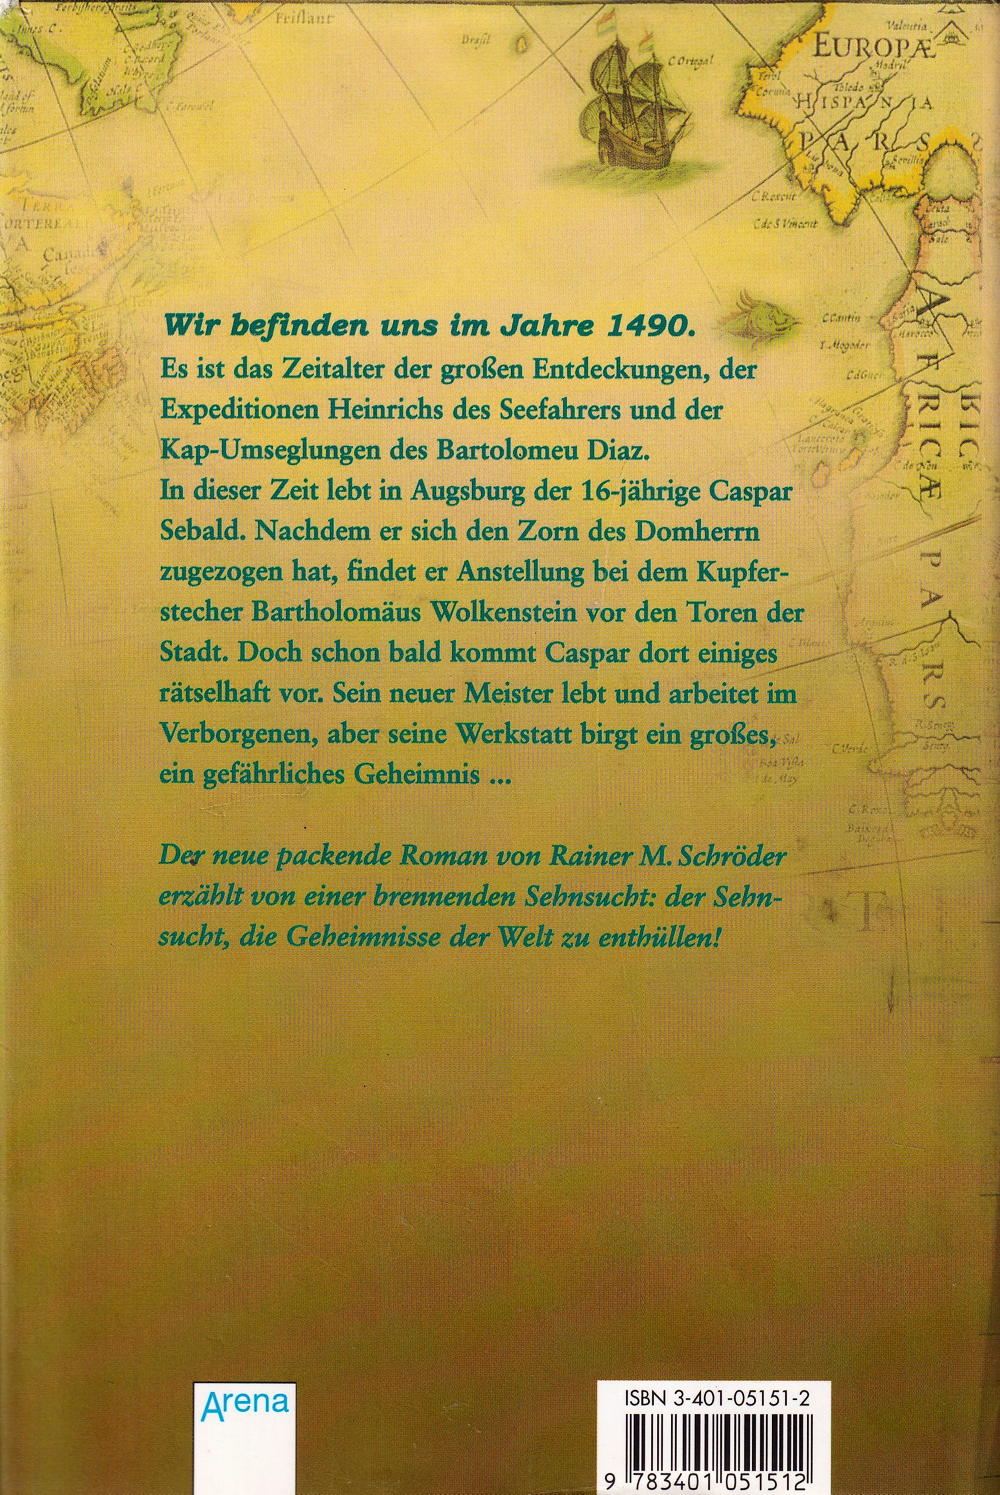 Forbishers Straits
Frislant
C. Farewel
Brasil
C Ortegal
Valentia
EUROPÆ
Madril
Toledo
HISPANIA
PARS
Sevilli
C. Roxent
C de S Vincent
TERRA
CORTEREALIS
Canada
C Cantin
I. Mogodor
Wir befinden uns im Jahre 1490.
Es ist das Zeitalter der großen Entdeckungen, der
Expeditionen Heinrichs des Seefahrers und der
Kap-Umseglungen des Bartolomeu Diaz.
In dieser Zeit lebt in Augsburg der 16-jährige Caspar
Sebald. Nachdem er sich den Zorn des Domherrn
zugezogen hat, findet er Anstellung bei dem Kupfer-
stecher Bartholomäus Wolkenstein vor den Toren der
Stadt. Doch schon bald kommt Caspar dort einiges
rätselhaft vor. Sein neuer Meister lebt und arbeitet im
Verborgenen, aber seine Werkstatt birgt ein großes,
ein gefährliches Geheimnis ...
AFRICÆ PARS
C. Verde
C. Roxo
Der neue packende Roman von Rainer M. Schröder
erzählt von einer brennenden Sehnsucht: der Sehn-
sucht, die Geheimnisse der Welt zu enthüllen!
Arena
ISBN 3-401-05151-2
9 783401 051512